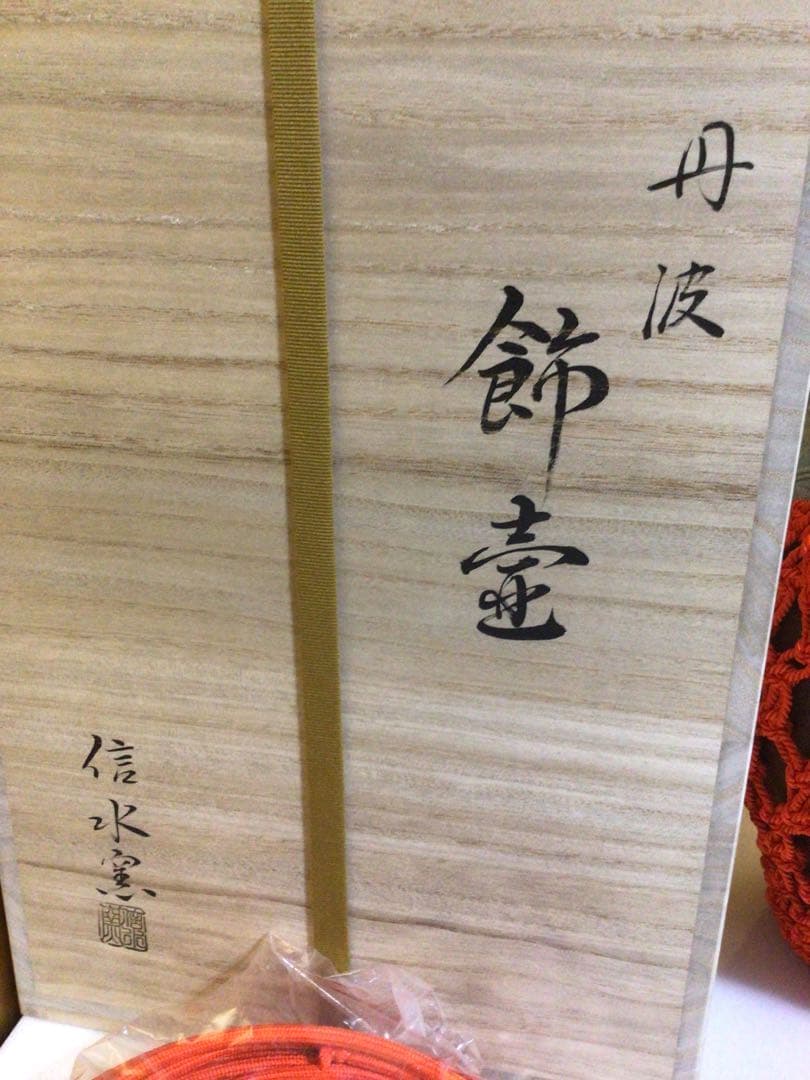 丹波
飾壷
信水窯